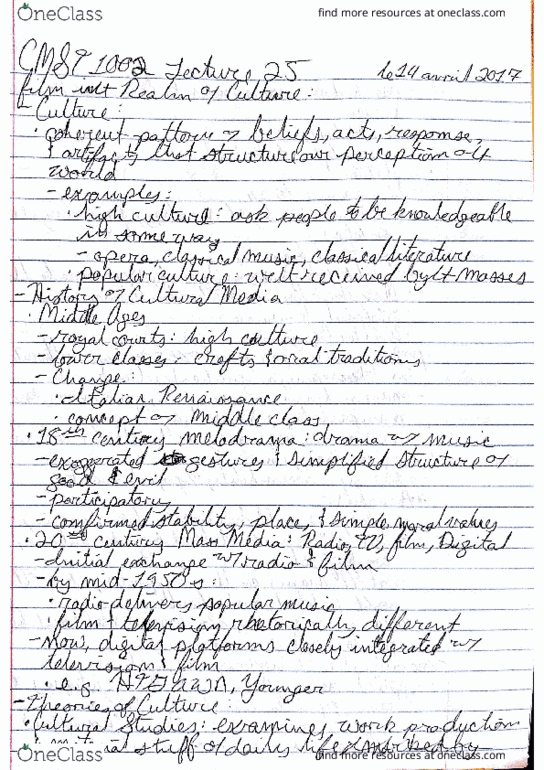 OneClass
find more resources at oneclass.com
CMST 1002 Lecture 25
le 14 avril 2017
film in Realm of Culture:
- Culture:
· coherent pattern of beliefs, acts, response,
& artifacts that structure our perception of
world
- examples:
· high culture: ask people to be knowledgeable
in some way
- opera, classical music, classical literature
· popular culture: well received by masses
- History of Cultural Media
· Middle Ages
- royal courts: high culture
- lower classes: crafts & oral traditions
- Change:
· Italian Renaissance
· concept of middle class
· 18th century melodrama: drama w/ music
- exaggerated gestures & simplified structure of
good & evil
- participatory
- confirmed stability, place, & simple moral values
· 20th century Mass Media: Radio, TV, film, Digital
- Initial exchange w/ radio & film
- by mid-1950s:
· radio delivers popular music
· film & television rhetorically different
- now, digital platforms closely integrated w/
television & film
· e.g. HTGAWM, Younger
- Theories of Culture:
· Cultural Studies: examines work production
stuff of daily life
OneClass
find more resources at oneclass.com